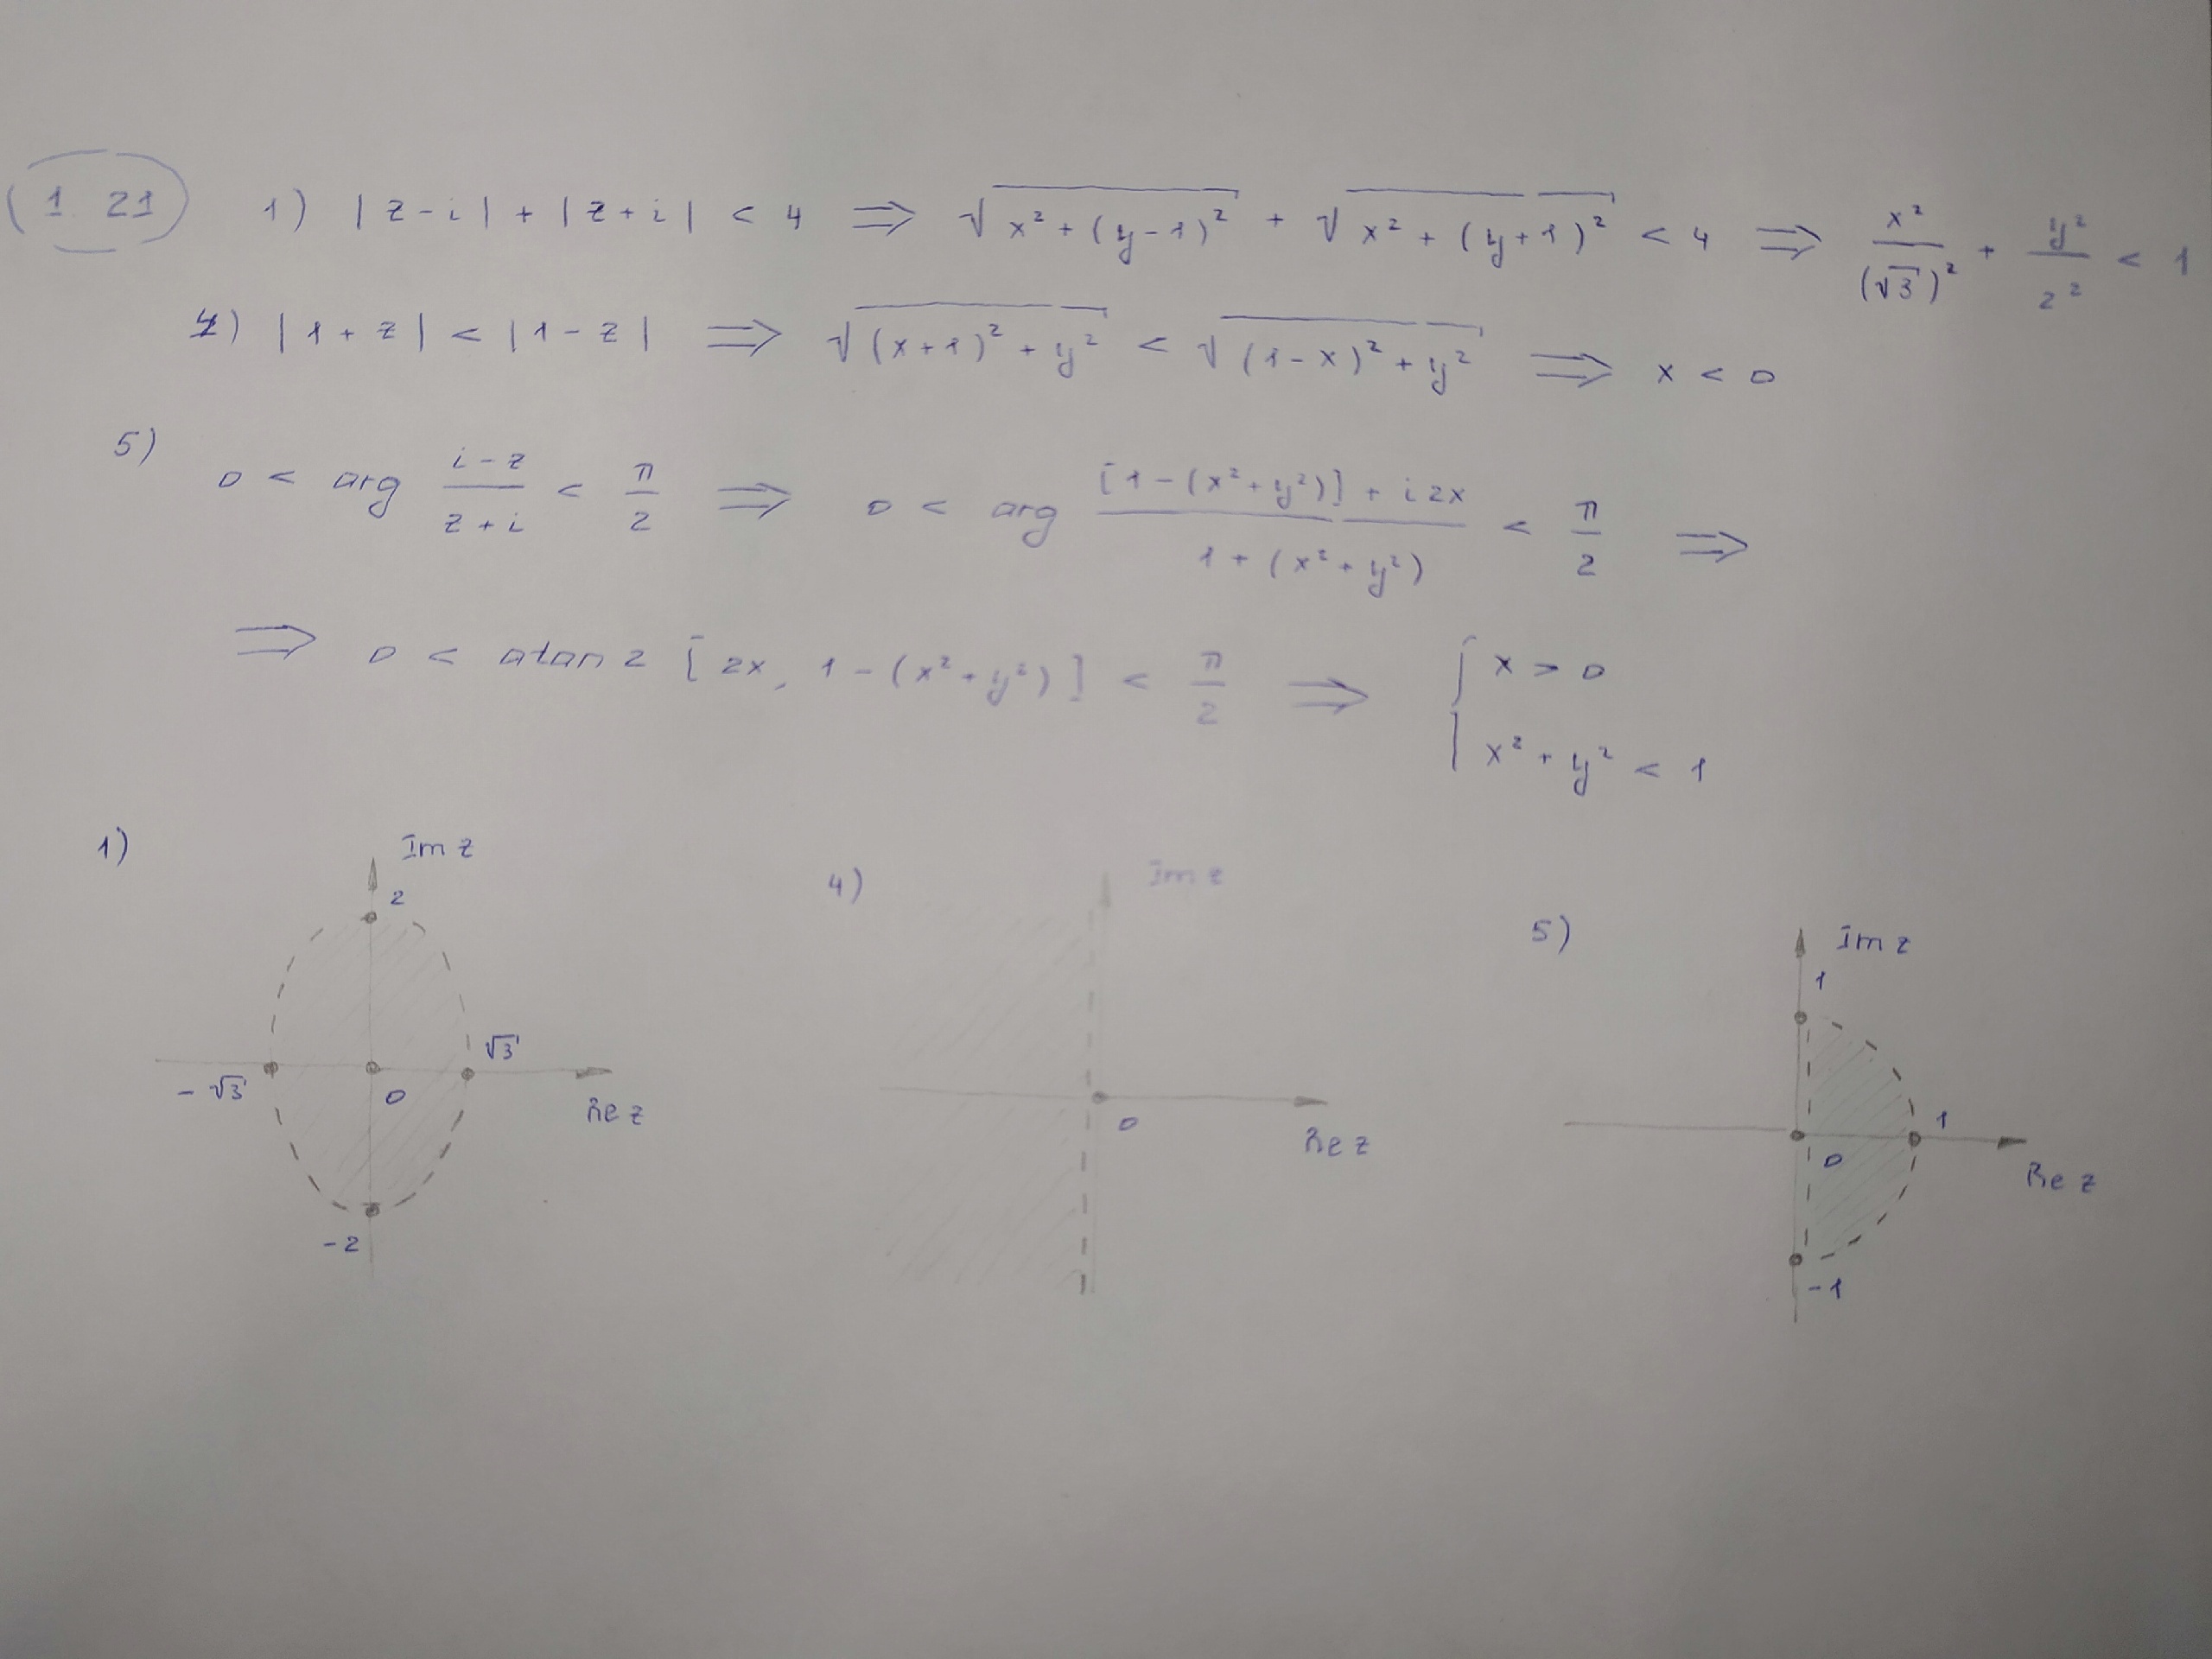 1. 21 1) |z-i| + |z+i| < 4 ⟹ √(x² + (y-1)²) + √(x² + (y+1)²) < 4 ⟹ x²/(√3)² + y²/2² < 1
4) |1+z| < |1-z| ⟹ √((x+1)² + y²) < √((1-x)² + y²) ⟹ x < 0
5) 0 < arg (i-z)/(z+i) < π/2 ⟹ 0 < arg ([1-(x²+y²)] + i2x)/(1+(x²+y²)) < π/2 ⟹
⟹ 0 < atan2 [2x, 1-(x²+y²)] < π/2 ⟹ { x > 0
x² + y² < 1
1) Im z
2
-√3 0 √3
Re z
-2
4) Im z
0
Re z
5) Im z
1
0 1
Re z
-1